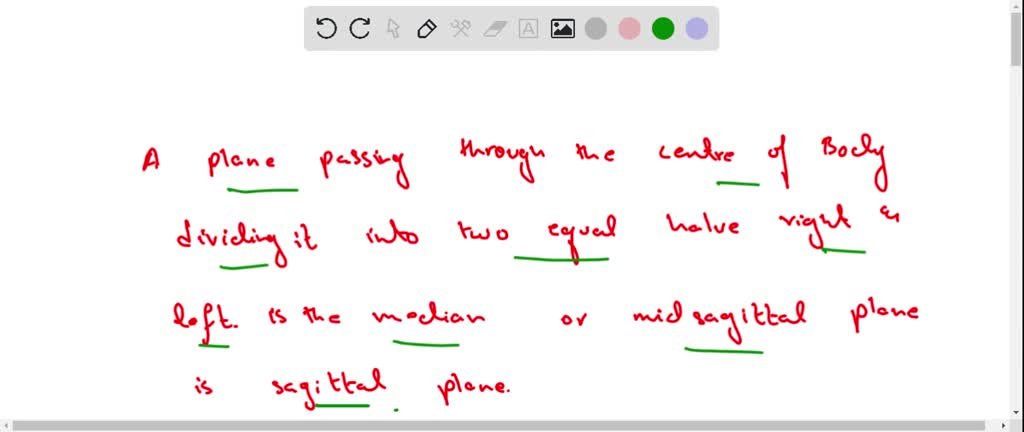 A plane passing through the centre of Body
dividing it into two equal halve right &
left. is the median or midsagittal plane
is sagittal plane.